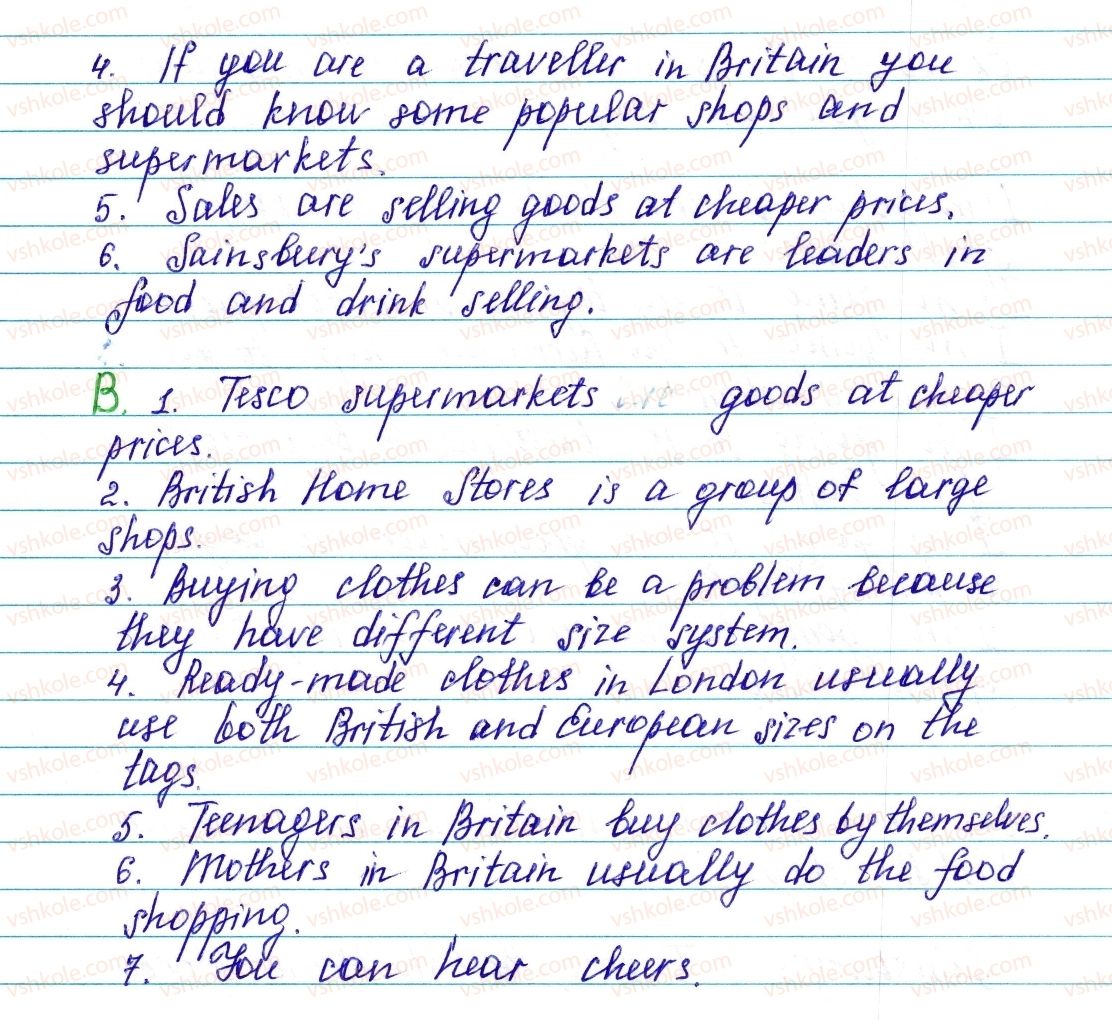 4. If you are a traveller in Britain you
should know some popular shops and
supermarkets.
5. Sales are selling goods at cheaper prices.
6. Sainsbury's supermarkets are leaders in
food and drink selling.
B. 1. Tesco supermarkets are goods at cheaper
prices.
2. British Home Stores is a group of large
shops.
3. Buying clothes can be a problem because
they have different size system.
4. Ready-made clothes in London usually
use both British and European sizes on the
tags.
5. Teenagers in Britain buy clothes by themselves.
6. Mothers in Britain usually do the food
shopping.
7. You can hear cheers.
vshkole.com